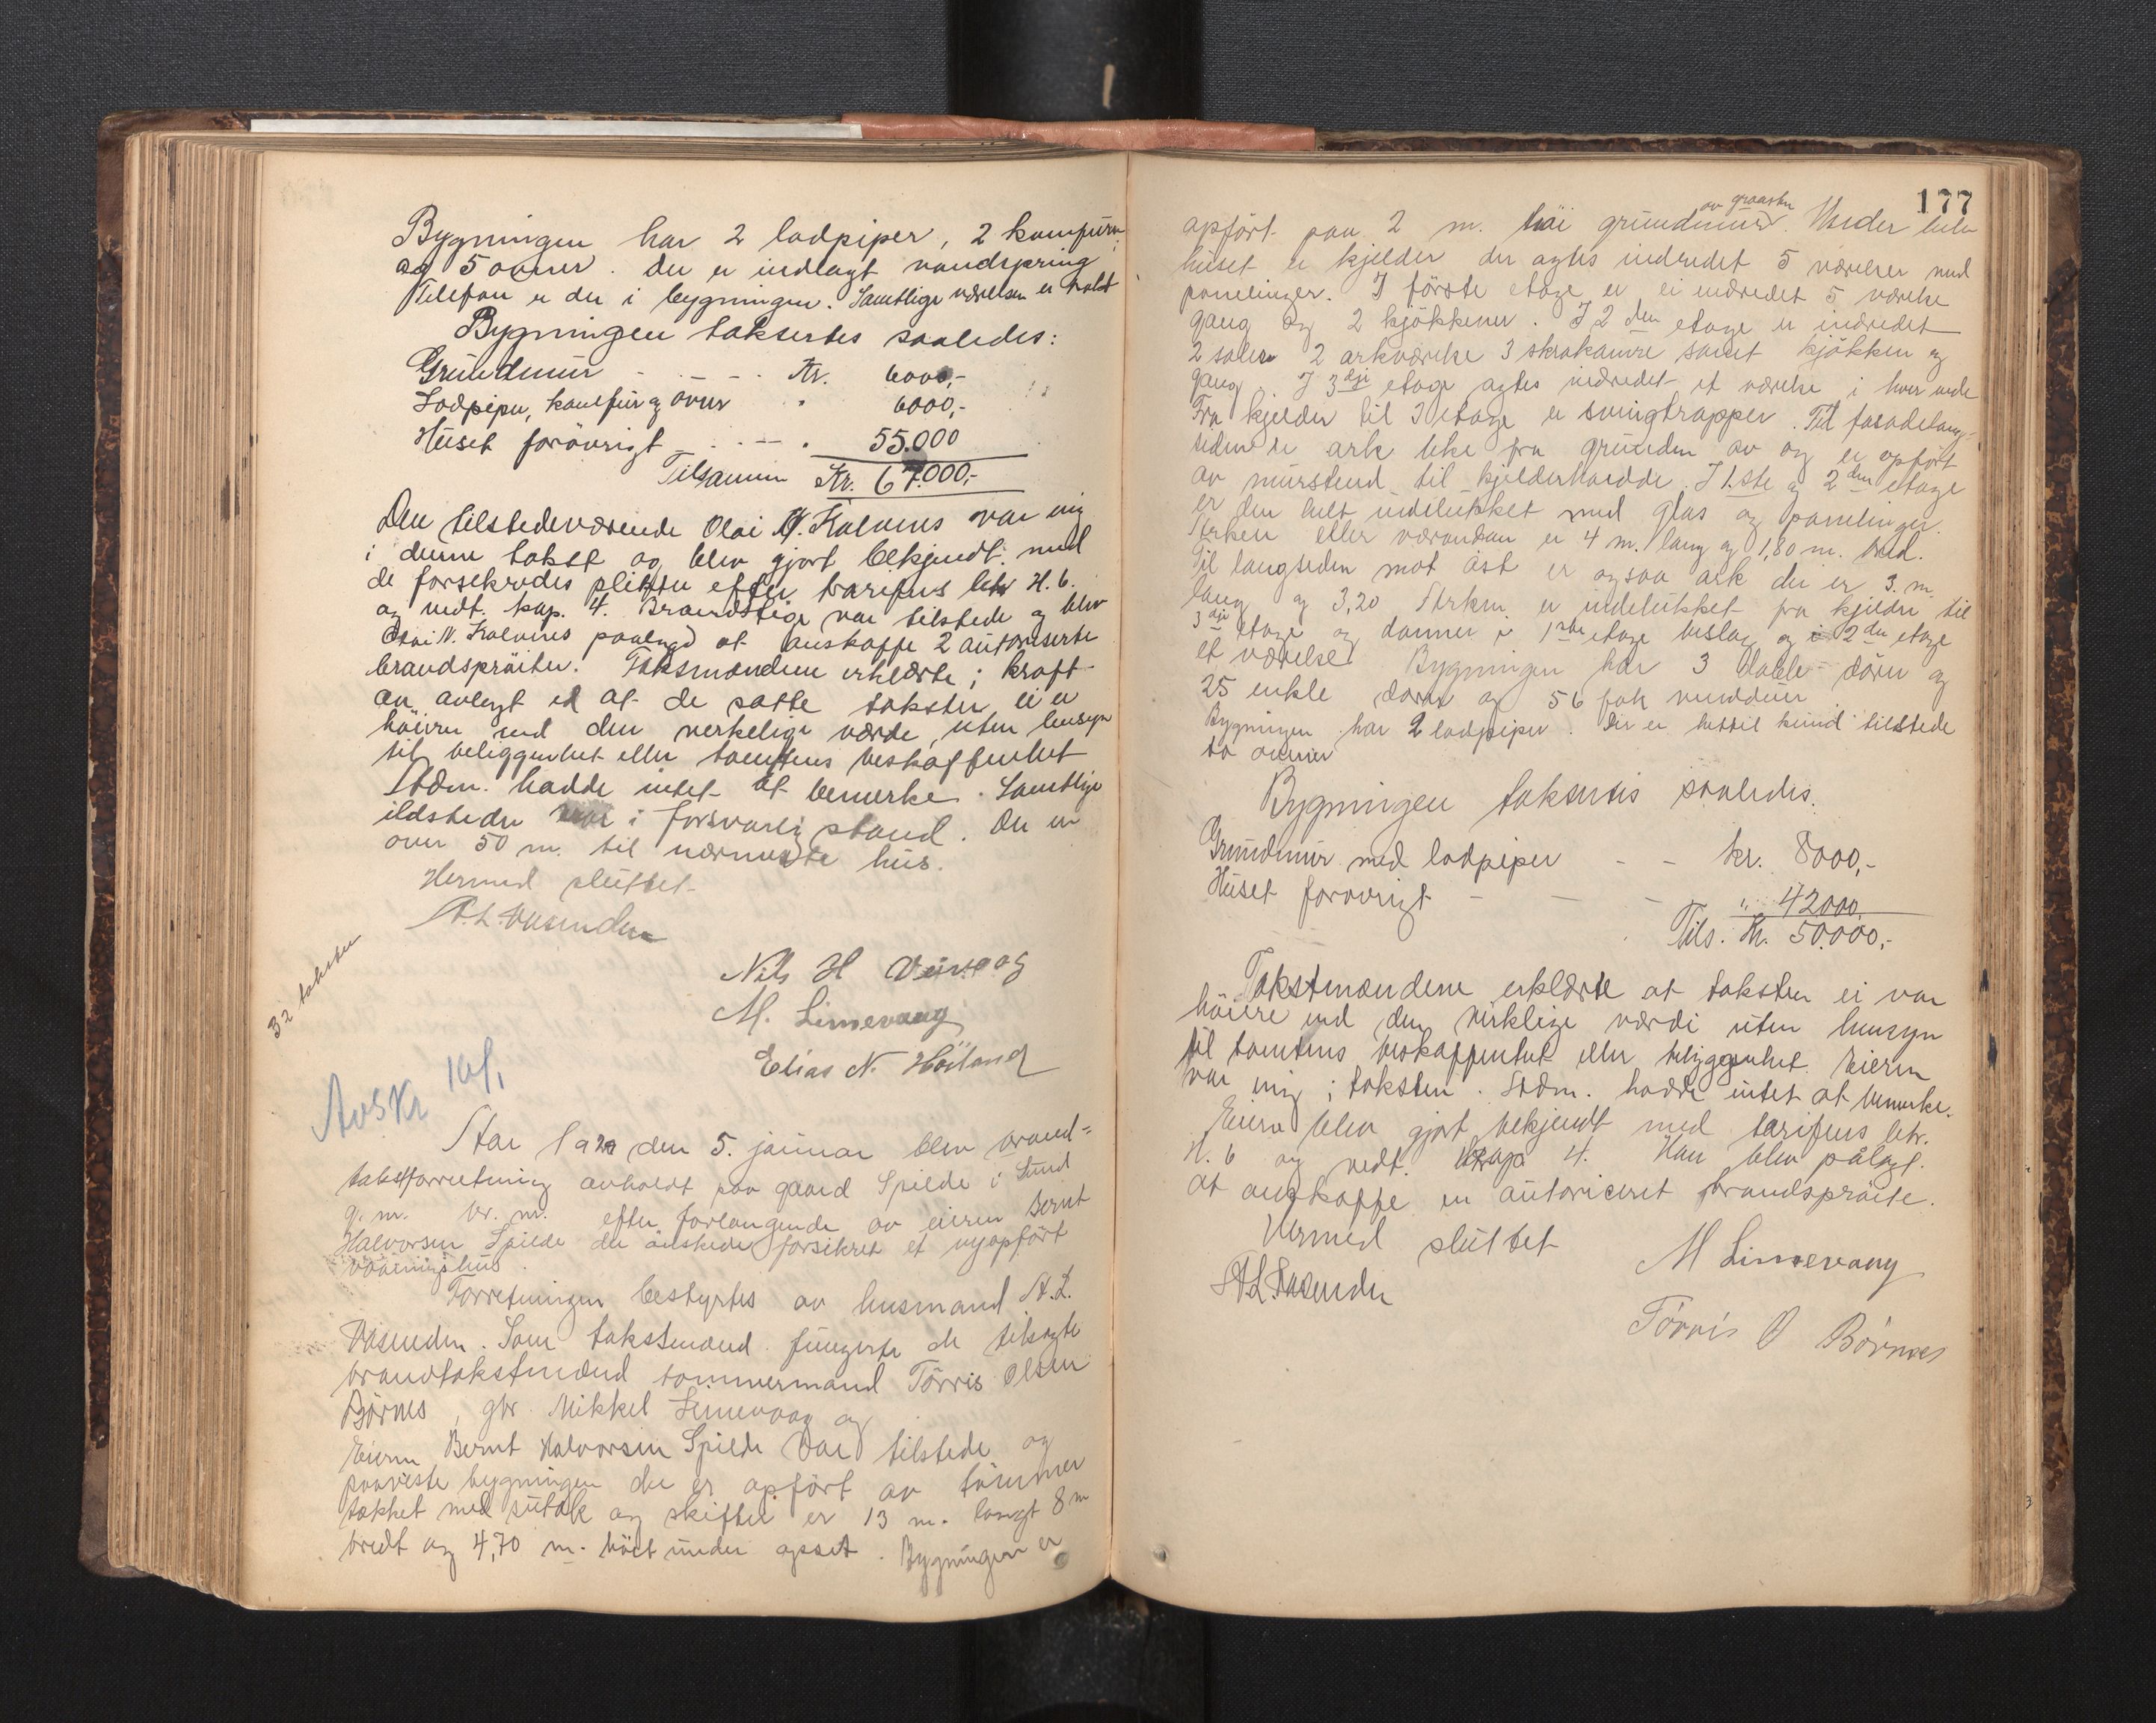 Bygningen har 2 lodpiper, 2 komfürer
og 5 ovner. Der er indlagt vandspring
Telefon er der i bygningen. Samtlige værelser er malt
Bygningen taksertes saaledes:
Grundmur - - - - Kr. 6000,-
Lodpiper, komfür og ovner " 6000,-
Huset forövrigt - - - " 55.000
Tilsammen Kr. 67.000,-
Den tilstedeværende Olai N. Kalvenes var enig
i denne takst og blev gjort bekjendt med
de forsekredes plikter efter tarifens litr H. 6.
og vedt. kap. 4. Brandstige var tilstede og blev
Olai N. Kalvenes paalagd at anskaffe 2 autoriserte
brandspröiter. Taksmændene erklærte i kraft
av avlagt ed at de satte takster ei er
höiere end den verkelige værde, uten hensyn
til beliggenhet eller tomtens beskaffenhet
Stdm. hadde intet at bemerke. Samtlige
ildsteder var i forsvarlig stand. Der er
over 50 m. til nærmeste hus.
Hermed sluttet
A. L. Vasenden
Nils H
M. Limevaag
Elias N. Höiland
32 taksten
Avskr
Aar 1920 den 5. januar blev brand=
takstforretning avholdt paa gaard Spilde i Sund
g. nr. br. nr. efter forlangende av eieren Bernt
Halvorsen Spilde der önskede forsikret et nyopfört
vaaningshus.
Forretningen bestyrtes av lensmand A. L.
Vasenden. Som takstmænd fungerte de tilsagte
brandtakstmænd tömmermand Törris Olsen
Börnes, gbr Mikkel Limevaag og
Eieren Bernt Halvorsen Spilde var tilstede og
paaviste bygningen der er opfört av tömmer
tækket med sutak og skifter er 13 m. langt 8 m
bredt og 4,70 m. höit under opset. Bygningen er
177
opfört paa 2 m. höi grundmur av graasten. Under hele
huset er kjelder der agtes indredet 5 værelser med
panelinger. I förste etage er ei indredet 5 værelse
gang og 2 kjökkener. I 2den etage er indredet
2 saler 2 arkværelse 3 skrakamre samt kjökken og
gang. I 3dje etage agtes indredet et værelse i hver ende
Fra kjelder til 3 etage er svingtrapper. Til fasadelang-
sidene er ark like fra grunden av og er opfört
av murstend til kjelderhoidde. I 1.ste og 2den etage
er den helt indelukket med glas og panelinger.
Arken eller værandan er 4 m. lang og 1,80 m. bred.
Til langsiden mot öst er ogsaa ark der er 3. m.
lang og 3,20 Arken er indelukket fra kjelder til
3dje etage og danner i 1ste etage bislag og i 2den etage
et værelse. Bygningen har 3 doble dörer og
25 enkle dörer og 56 fak vindduer
Bygningen har 2 lodpiper. Der er hertil kund tilstede
to ovner
Bygningen takseres saaledes.
Grundmur med lodpiper - - kr. 8000,-
Huset forovrigt - - - " 42000,
Tils. Kr. 50.000,-
Takstmændene erklærte at taksten ei var
höiere end den virklige værdi uten hensyn
til tomtens beskaffenhet eller beliggenhet. Eieren
var enig i taksten. Stdm. hadde intet at bemerke.
Eieren blev gjort bekjendt med tarifens litr.
H. 6 og vedt. kap 4. Han blev pålagt.
at anskaffe en autoriceret brandspröite.
Hermed sluttet
A L Vasenden
M Limevaag
Törris O Börnes